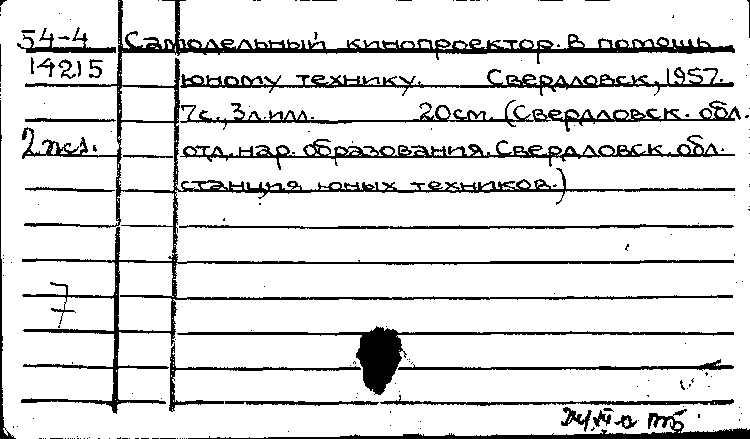 54-4 Самодельный кинопроектор. В помощь
14215 юному технику. Свердловск, 1957.
7с., 3 л. илл. 20см. (Свердловск. обл.
2 экз. отд. нар. образования. Свердловск. обл.
станция юных техников.)
7